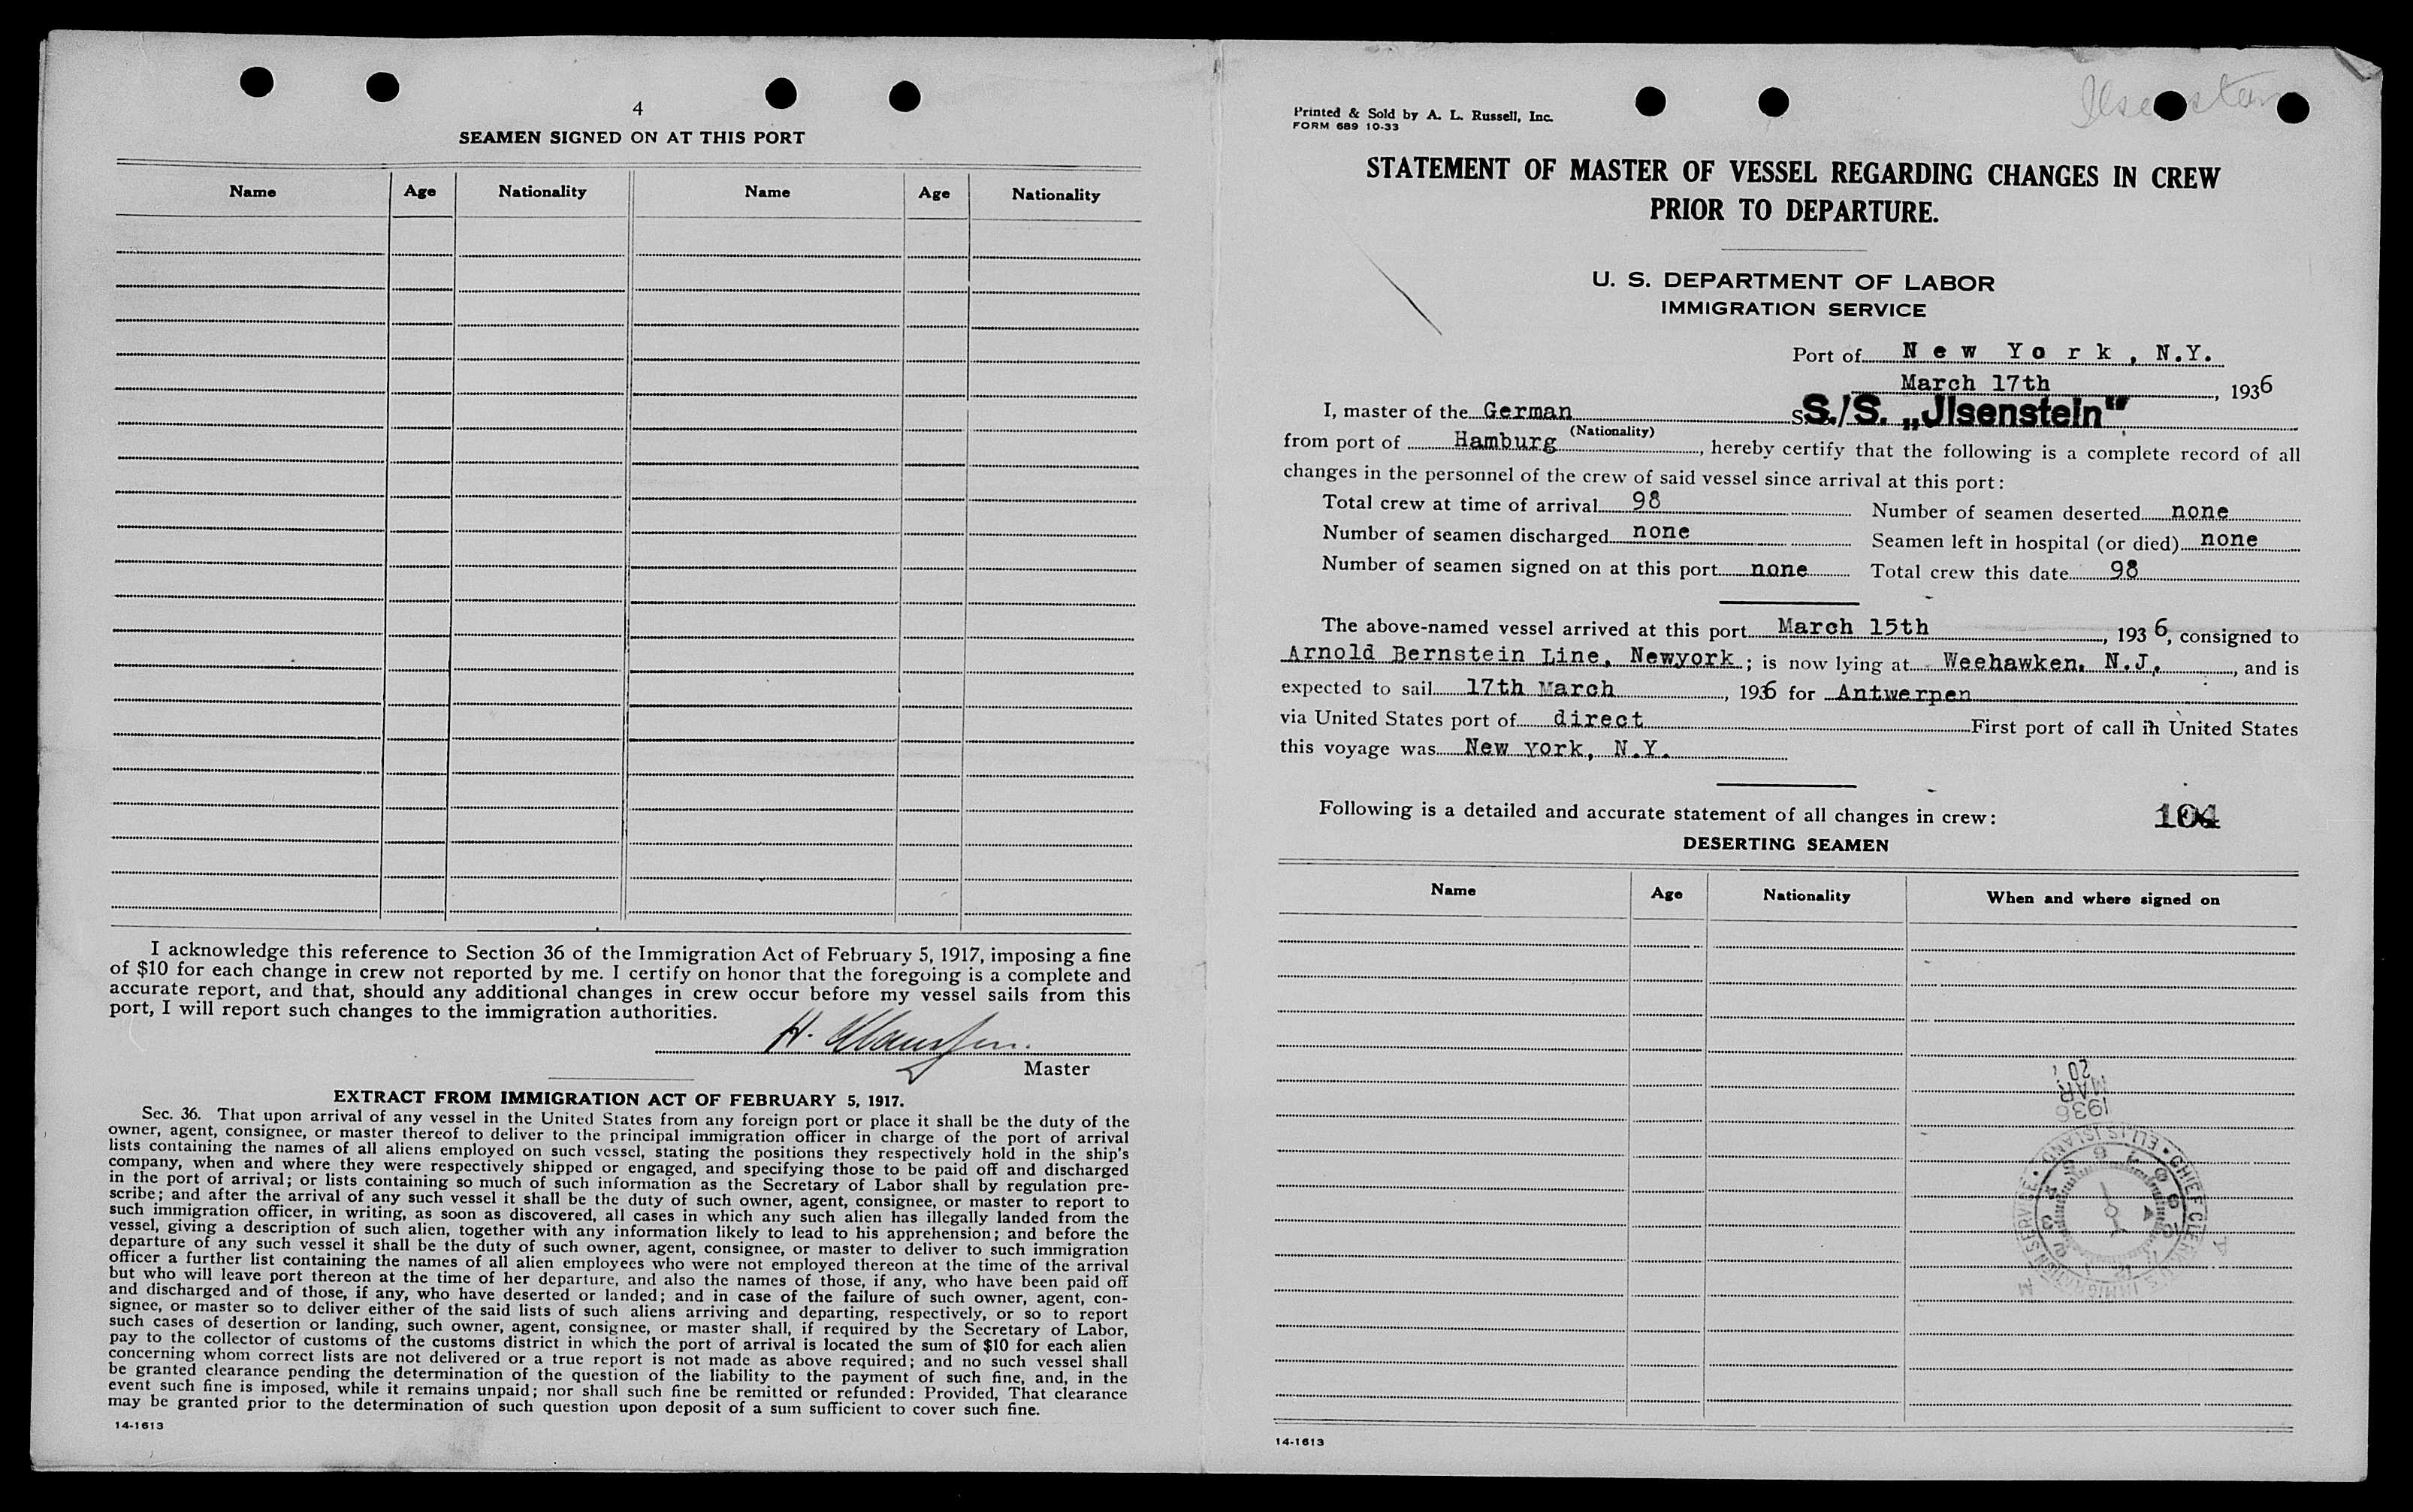 4
SEAMEN SIGNED ON AT THIS PORT
Name Age Nationality Name Age Nationality
I acknowledge this reference to Section 36 of the Immigration Act of February 5, 1917, imposing a fine
of $10 for each change in crew not reported by me. I certify on honor that the foregoing is a complete and
accurate report, and that, should any additional changes in crew occur before my vessel sails from this
port, I will report such changes to the immigration authorities.
H.
Master
EXTRACT FROM IMMIGRATION ACT OF FEBRUARY 5, 1917.
Sec. 36. That upon arrival of any vessel in the United States from any foreign port or place it shall be the duty of the
owner, agent, consignee, or master thereof to deliver to the principal immigration officer in charge of the port of arrival
lists containing the names of all aliens employed on such vessel, stating the positions they respectively hold in the ship's
company, when and where they were respectively shipped or engaged, and specifying those to be paid off and discharged
in the port of arrival; or lists containing so much of such information as the Secretary of Labor shall by regulation pre-
scribe; and after the arrival of any such vessel it shall be the duty of such owner, agent, consignee, or master to report to
such immigration officer, in writing, as soon as discovered, all cases in which any such alien has illegally landed from the
vessel, giving a description of such alien, together with any information likely to lead to his apprehension; and before the
departure of any such vessel it shall be the duty of such owner, agent, consignee, or master to deliver to such immigration
officer a further list containing the names of all alien employees who were not employed thereon at the time of the arrival
but who will leave port thereon at the time of her departure, and also the names of those, if any, who have been paid off
and discharged and of those, if any, who have deserted or landed; and in case of the failure of such owner, agent, con-
signee, or master so to deliver either of the said lists of such aliens arriving and departing, respectively, or so to report
such cases of desertion or landing, such owner, agent, consignee, or master shall, if required by the Secretary of Labor,
pay to the collector of customs of the customs district in which the port of arrival is located the sum of $10 for each alien
concerning whom correct lists are not delivered or a true report is not made as above required; and no such vessel shall
be granted clearance pending the determination of the question of the liability to the payment of such fine, and, in the
event such fine is imposed, while it remains unpaid; nor shall such fine be remitted or refunded: Provided, That clearance
may be granted prior to the determination of such question upon deposit of a sum sufficient to cover such fine.
14-1613
Ilsenstein
Printed & Sold by A. L. Russell, Inc.
FORM 689 10-33
STATEMENT OF MASTER OF VESSEL REGARDING CHANGES IN CREW
PRIOR TO DEPARTURE.
U. S. DEPARTMENT OF LABOR
IMMIGRATION SERVICE
Port of New York, N.Y.
March 17th, 1936
I, master of the German S./S. „Jlsenstein“
(Nationality)
from port of Hamburg, hereby certify that the following is a complete record of all
changes in the personnel of the crew of said vessel since arrival at this port:
Total crew at time of arrival 98 Number of seamen deserted none
Number of seamen discharged none Seamen left in hospital (or died) none
Number of seamen signed on at this port none Total crew this date 98
The above-named vessel arrived at this port March 15th, 1936, consigned to
Arnold Bernstein Line, Newyork; is now lying at Weehawken, N.J., and is
expected to sail 17th March, 1936 for Antwerpen
via United States port of direct First port of call in United States
this voyage was New york, N.Y.
Following is a detailed and accurate statement of all changes in crew: 104
DESERTING SEAMEN
Name Age Nationality When and where signed on
1936
MAR
20
CHIEF CLERK U.S. IMMIGRATION SERVICE • ELLIS ISLAND •
14-1613